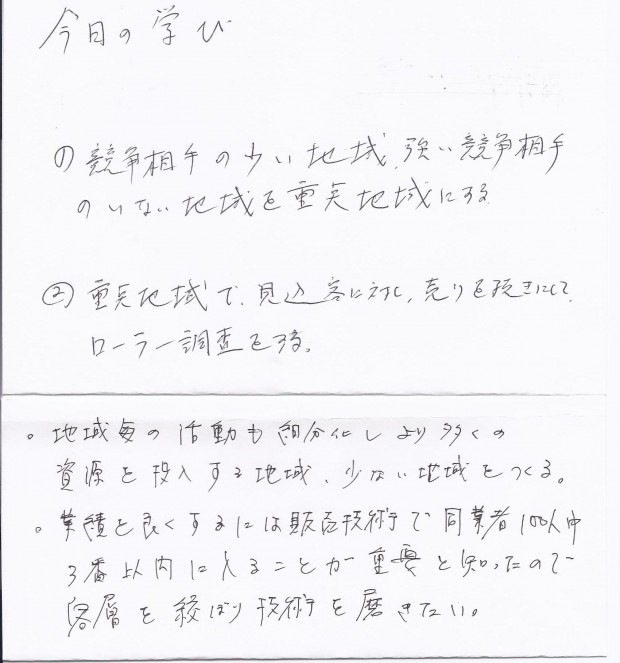 今日の学び
① 競争相手の少い地域、強い競争相手
のいない地域を重点地域にする
② 重点地域で、見込客に対し、売りを抜きにして、
ローラー調査をする。
・地域毎の活動も細分化しより多くの
資源を投入する地域、少ない地域をつくる。
・業績を良くするには販売技術で同業者100人中
3番以内に入ることが重要と知ったので
客層を絞り技術を磨きたい。